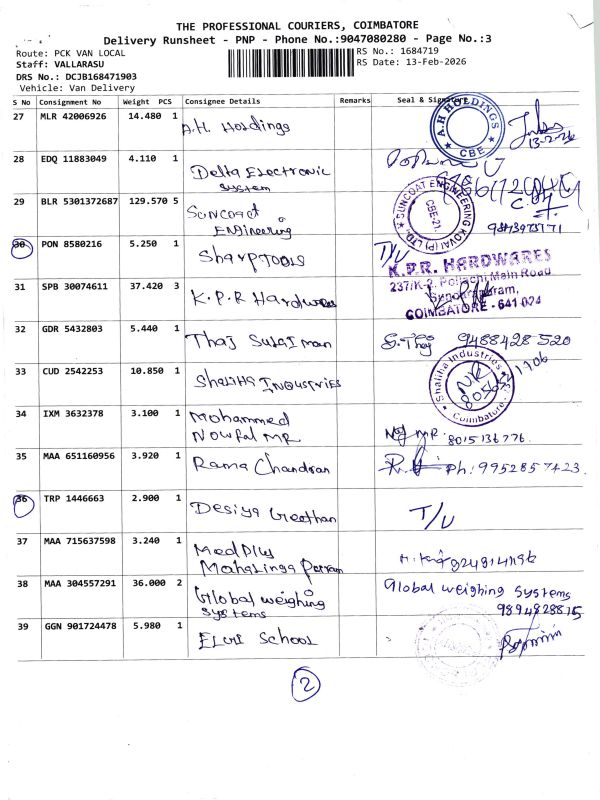 THE PROFESSIONAL COURIERS, COIMBATORE
Delivery Runsheet - PNP - Phone No.:9047080280 - Page No.:3
Route: PCK VAN LOCAL
RS No.: 1684719
Staff: VALLARASU
RS Date: 13-Feb-2026
DRS No.: DCJB168471903
Vehicle: Van Delivery
S No Consignment No Weight PCS Consignee Details Remarks Seal & Signature
27 MLR 42006926 14.480 1 A.H. Holdings
A.H HOLDINGS
★ CBE ★
13-2-26
28 EDQ 11883049 4.110 1 Delta Electronic
System
29 BLR 5301372687 129.570 5 Suncoat
Engineering
SUNCOAT ENGINEERING KOVAI (P) LTD.
CBE-21.
30 PON 8580216 5.250 1 Sharptools T/U
31 SPB 30074611 37.420 3 K.P.R Hardwares
K.P.R. HARDWARES
237/K-2, Pollachi Main Road
Sundarapuram,
COIMBATORE - 641 024
32 GDR 5432803 5.440 1 Thaj Sulaiman S.Thaj 9488428520
33 CUD 2542253 10.850 1 Shaliha Industries
Shaliha Industries
Coimbatore
34 IXM 3632378 3.100 1 Mohammed
Nowfal MR
8015136776
35 MAA 651160956 3.920 1 Rama Chandran Ph: 9952857423
36 TRP 1446663 2.900 1 Desiya Geethan T/U
37 MAA 715637598 3.240 1 Medplus
Mahalinga Puram
38 MAA 304557291 36.000 2 Global weighing
systems
Global weighing systems
9894828815
39 GGN 901724478 5.980 1 School
2